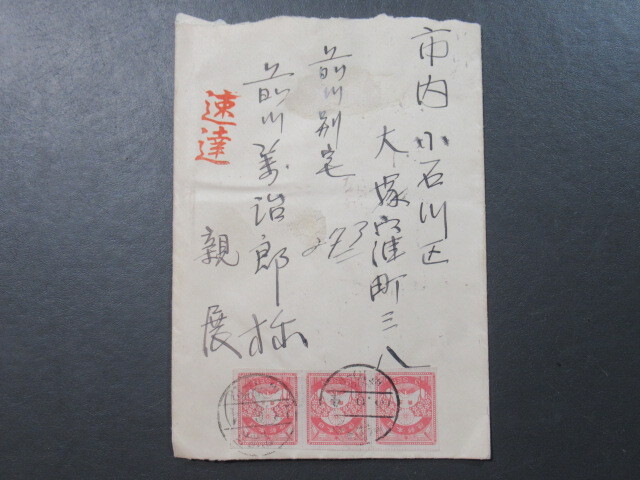 市内小石川区
大塚窪町三八
前川別宅
前川善治郎様
親展
速達